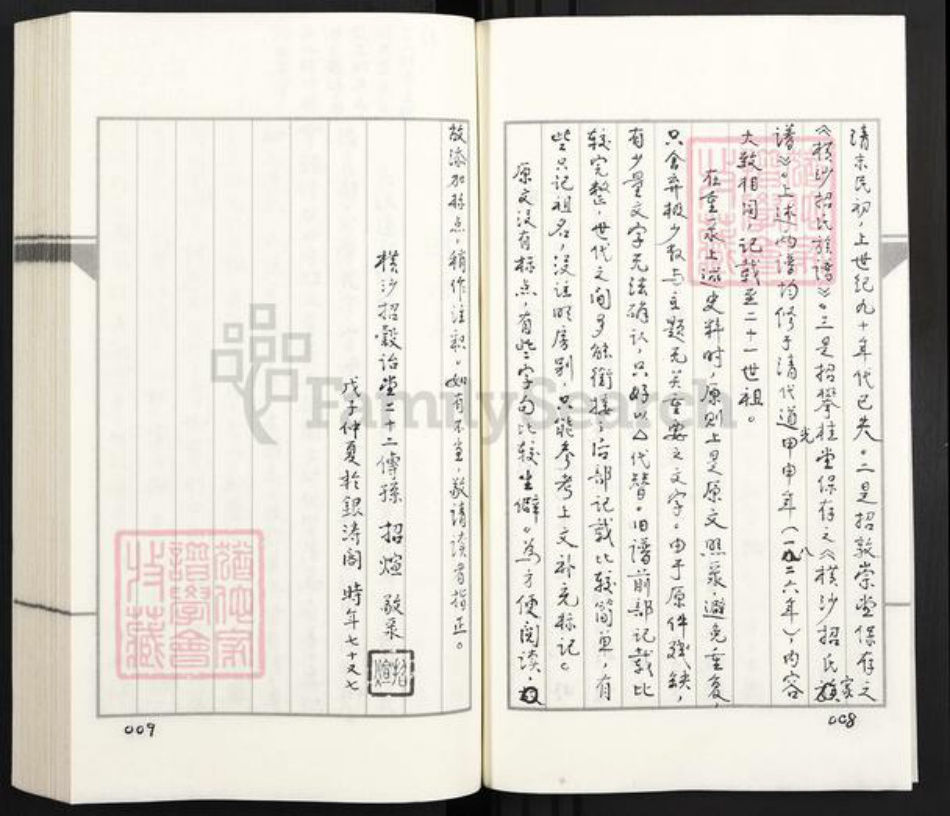 清末民初，上世纪九十年代已失。二是招敦崇堂保存之
《横沙招氏族谱》。三是招攀桂堂保存之《横沙招氏家
谱》。上述两谱均修于清代道光甲申年（一八二六年），内容
大致相同，记载至二十一世祖。
在重录上述史料时，原则上是原文照录，避免重复，
只舍弃极少数与主题无关重要之文字。由于原件残缺，
有少量文字无法确认，只好以△代替。旧谱前部记载比
较完整，世代之间多能衔接；后部记载比较简单，有
些只记祖名，没注明房别，只能参考上文补充标记。
原文没有标点，有些字句比较生僻。为方便阅读，
008
故添加标点，稍作注释。如有不宜，敬请读者指正。
横沙招毅诒堂二十二傳孫 招煊 敬录
戊子仲夏於銀涛阁 時年七十又七
招煊
009
FamilySearch